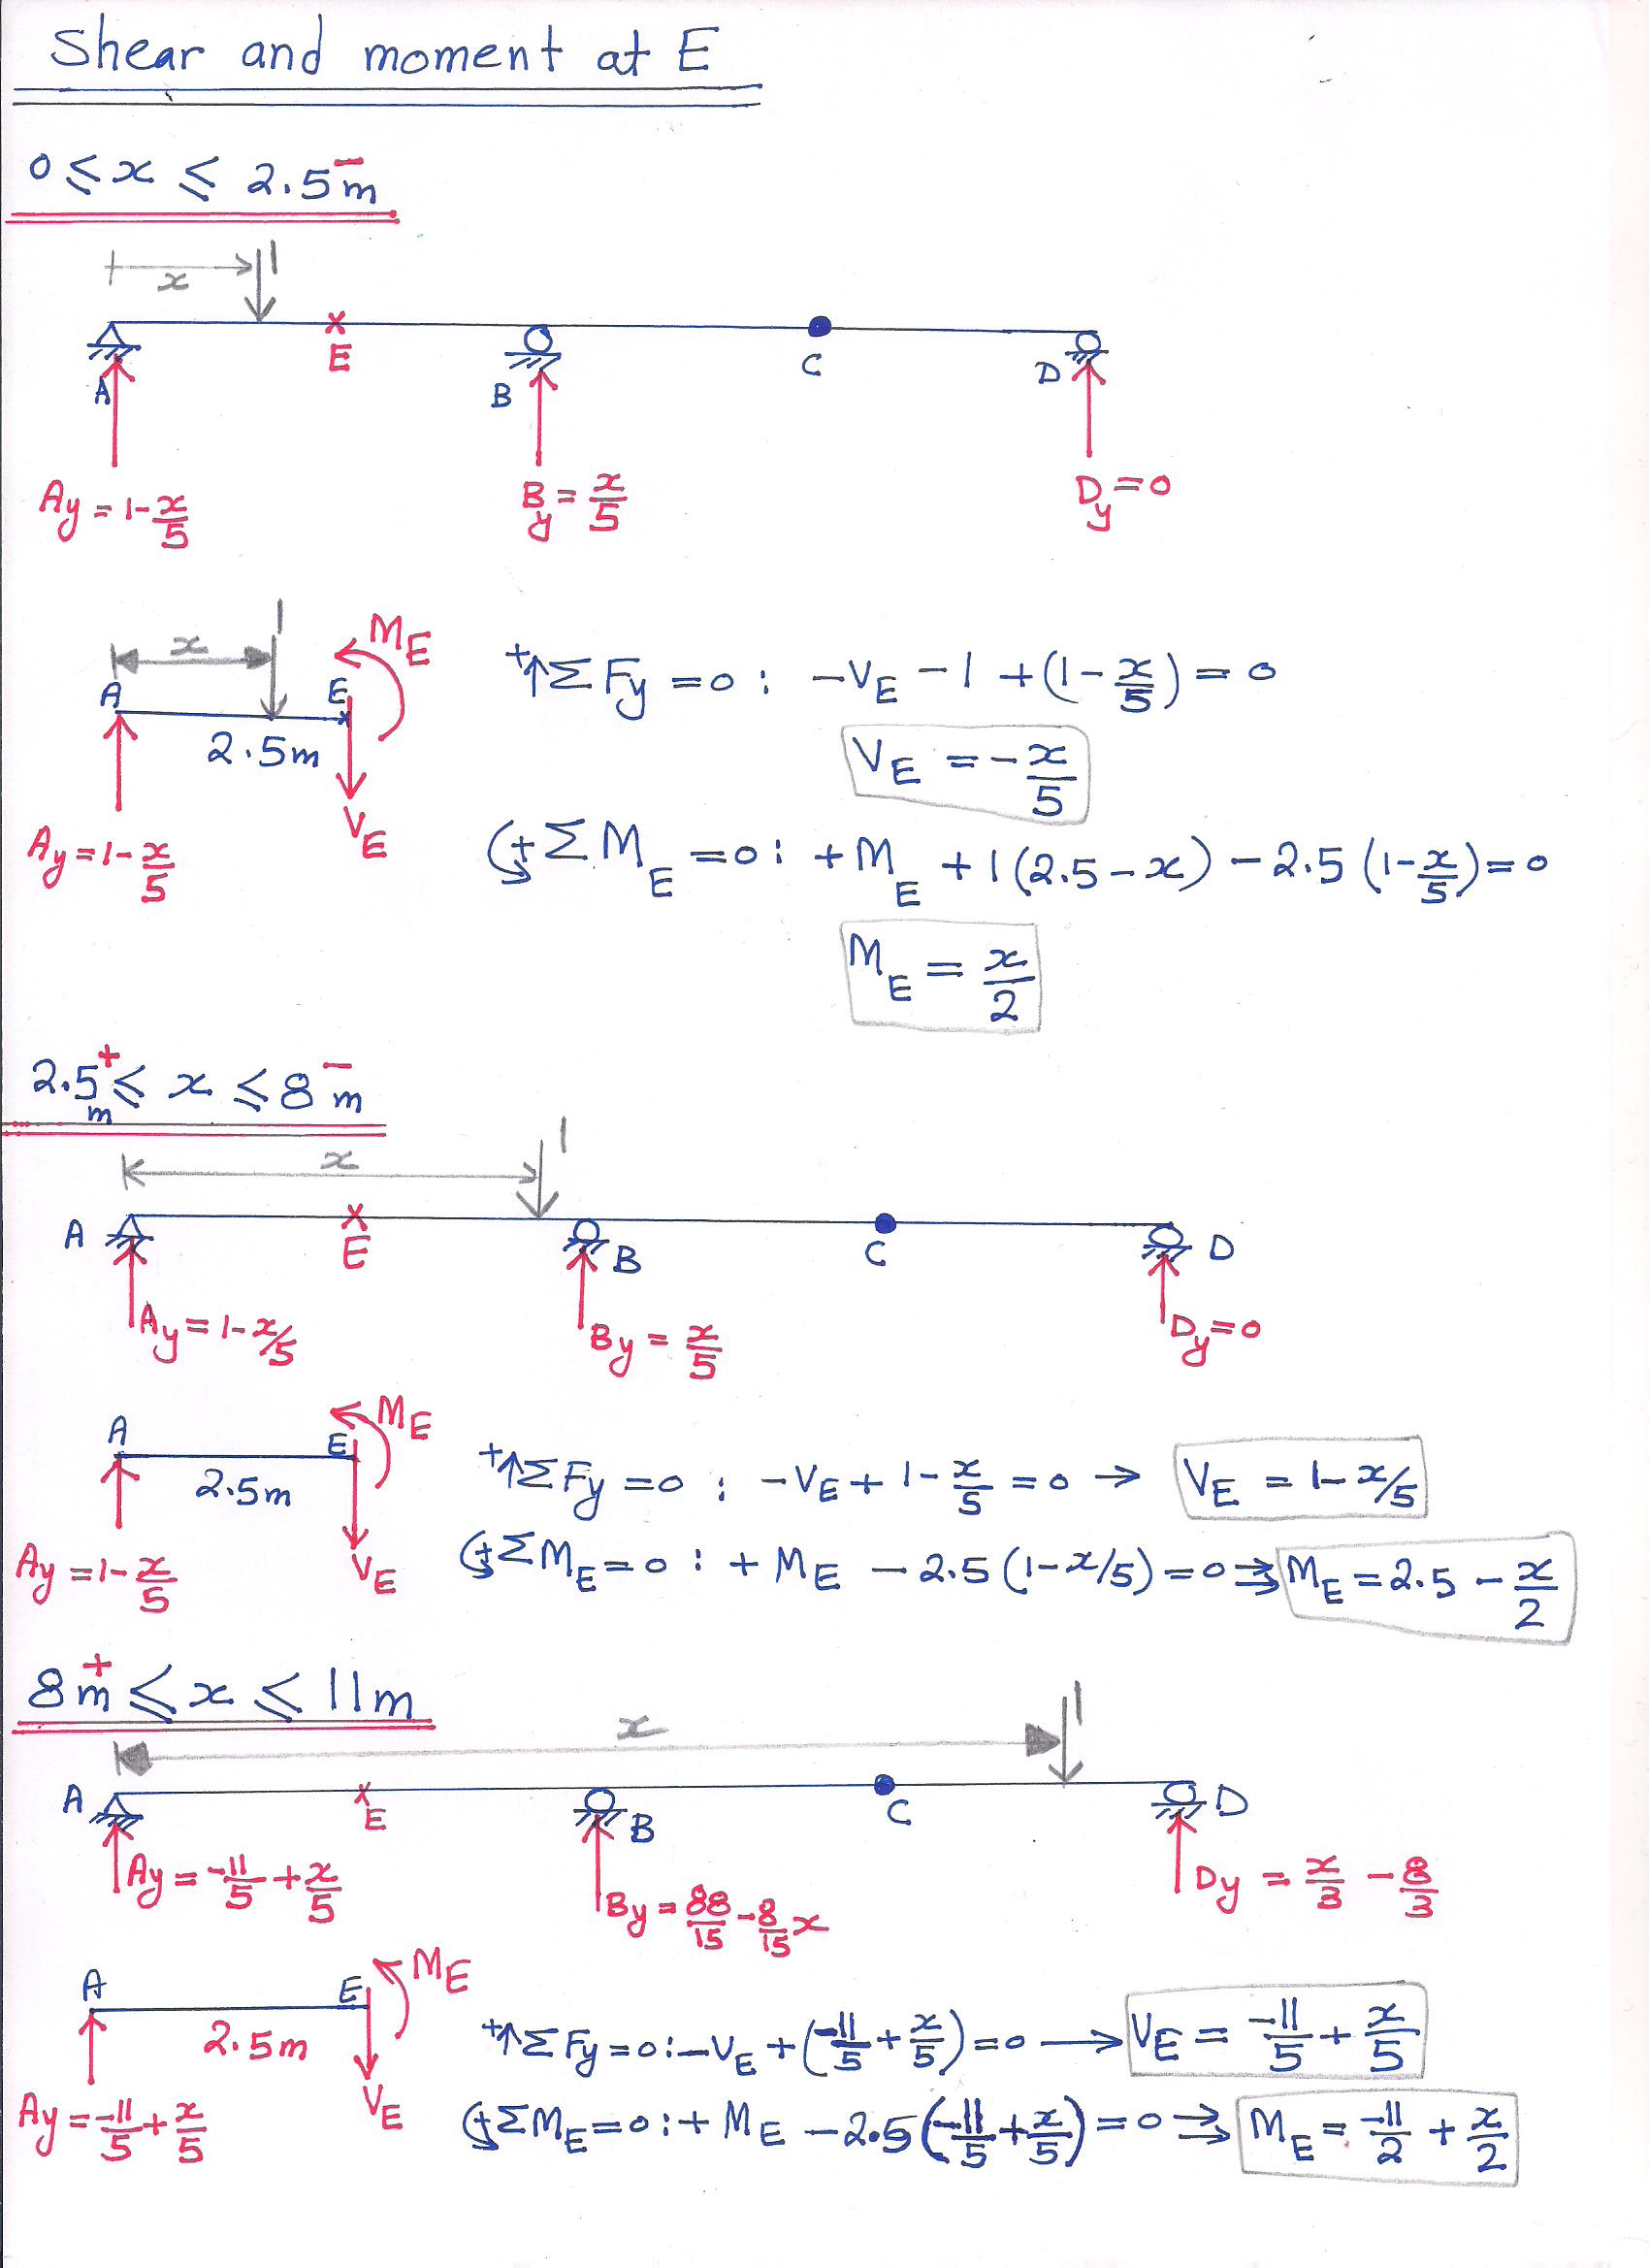 Shear and moment at E
0 ≤ x ≤ 2.5⁻m
x 1
E
A B C D
Ay = 1 - x/5
By = x/5
Dy = 0
x 1 M_E
A E
2.5m
V_E
Ay = 1 - x/5
+↑ΣFy = 0 : -V_E - 1 + (1 - x/5) = 0
V_E = -x/5
+ΣM_E = 0 : +M_E + 1(2.5 - x) - 2.5(1 - x/5) = 0
M_E = x/2
2.5⁺m ≤ x ≤ 8⁻m
x 1
A E B C D
Ay = 1 - x/5
By = x/5
Dy = 0
A E M_E
2.5m
V_E
Ay = 1 - x/5
+↑ΣFy = 0 : -V_E + 1 - x/5 = 0 → V_E = 1 - x/5
+ΣM_E = 0 : +M_E - 2.5(1 - x/5) = 0 ⇒ M_E = 2.5 - x/2
8⁺m ≤ x ≤ 11m
x 1
A E B C D
Ay = -11/5 + x/5
By = 88/15 - 8/15 x
Dy = x/3 - 8/3
A E M_E
2.5m
V_E
Ay = -11/5 + x/5
+↑ΣFy = 0 : -V_E + (-11/5 + x/5) = 0 → V_E = -11/5 + x/5
+ΣM_E = 0 : +M_E - 2.5(-11/5 + x/5) = 0 ⇒ M_E = -11/2 + x/2